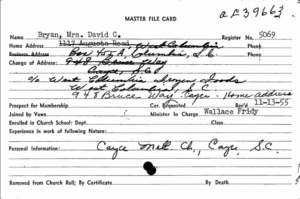 a F39663
MASTER FILE CARD
Name Bryan, Mrs. David C. Register No. 5069
Home Address 1117 Augusta Road, West Columbia Phone
Business Address Box 45 A, Columbia, S.C. Phone
Change of Address: 948 Bruce Way
Cayce, S.C.
c/o West Columbia
West Columbia, S.C.
948 Bruce Way, Cayce - Home address
Prospect for Membership Cor. Requested Rec'd 11-13-55
Joined by Vows Minister In Charge Wallace Fridy
Enrolled in Church School: Dept. Class
Experience in work of following Nature:
Personal Information: Cayce Meth. Ch., Cayce, S.C.
Removed from Church Roll; By Certificate By Death